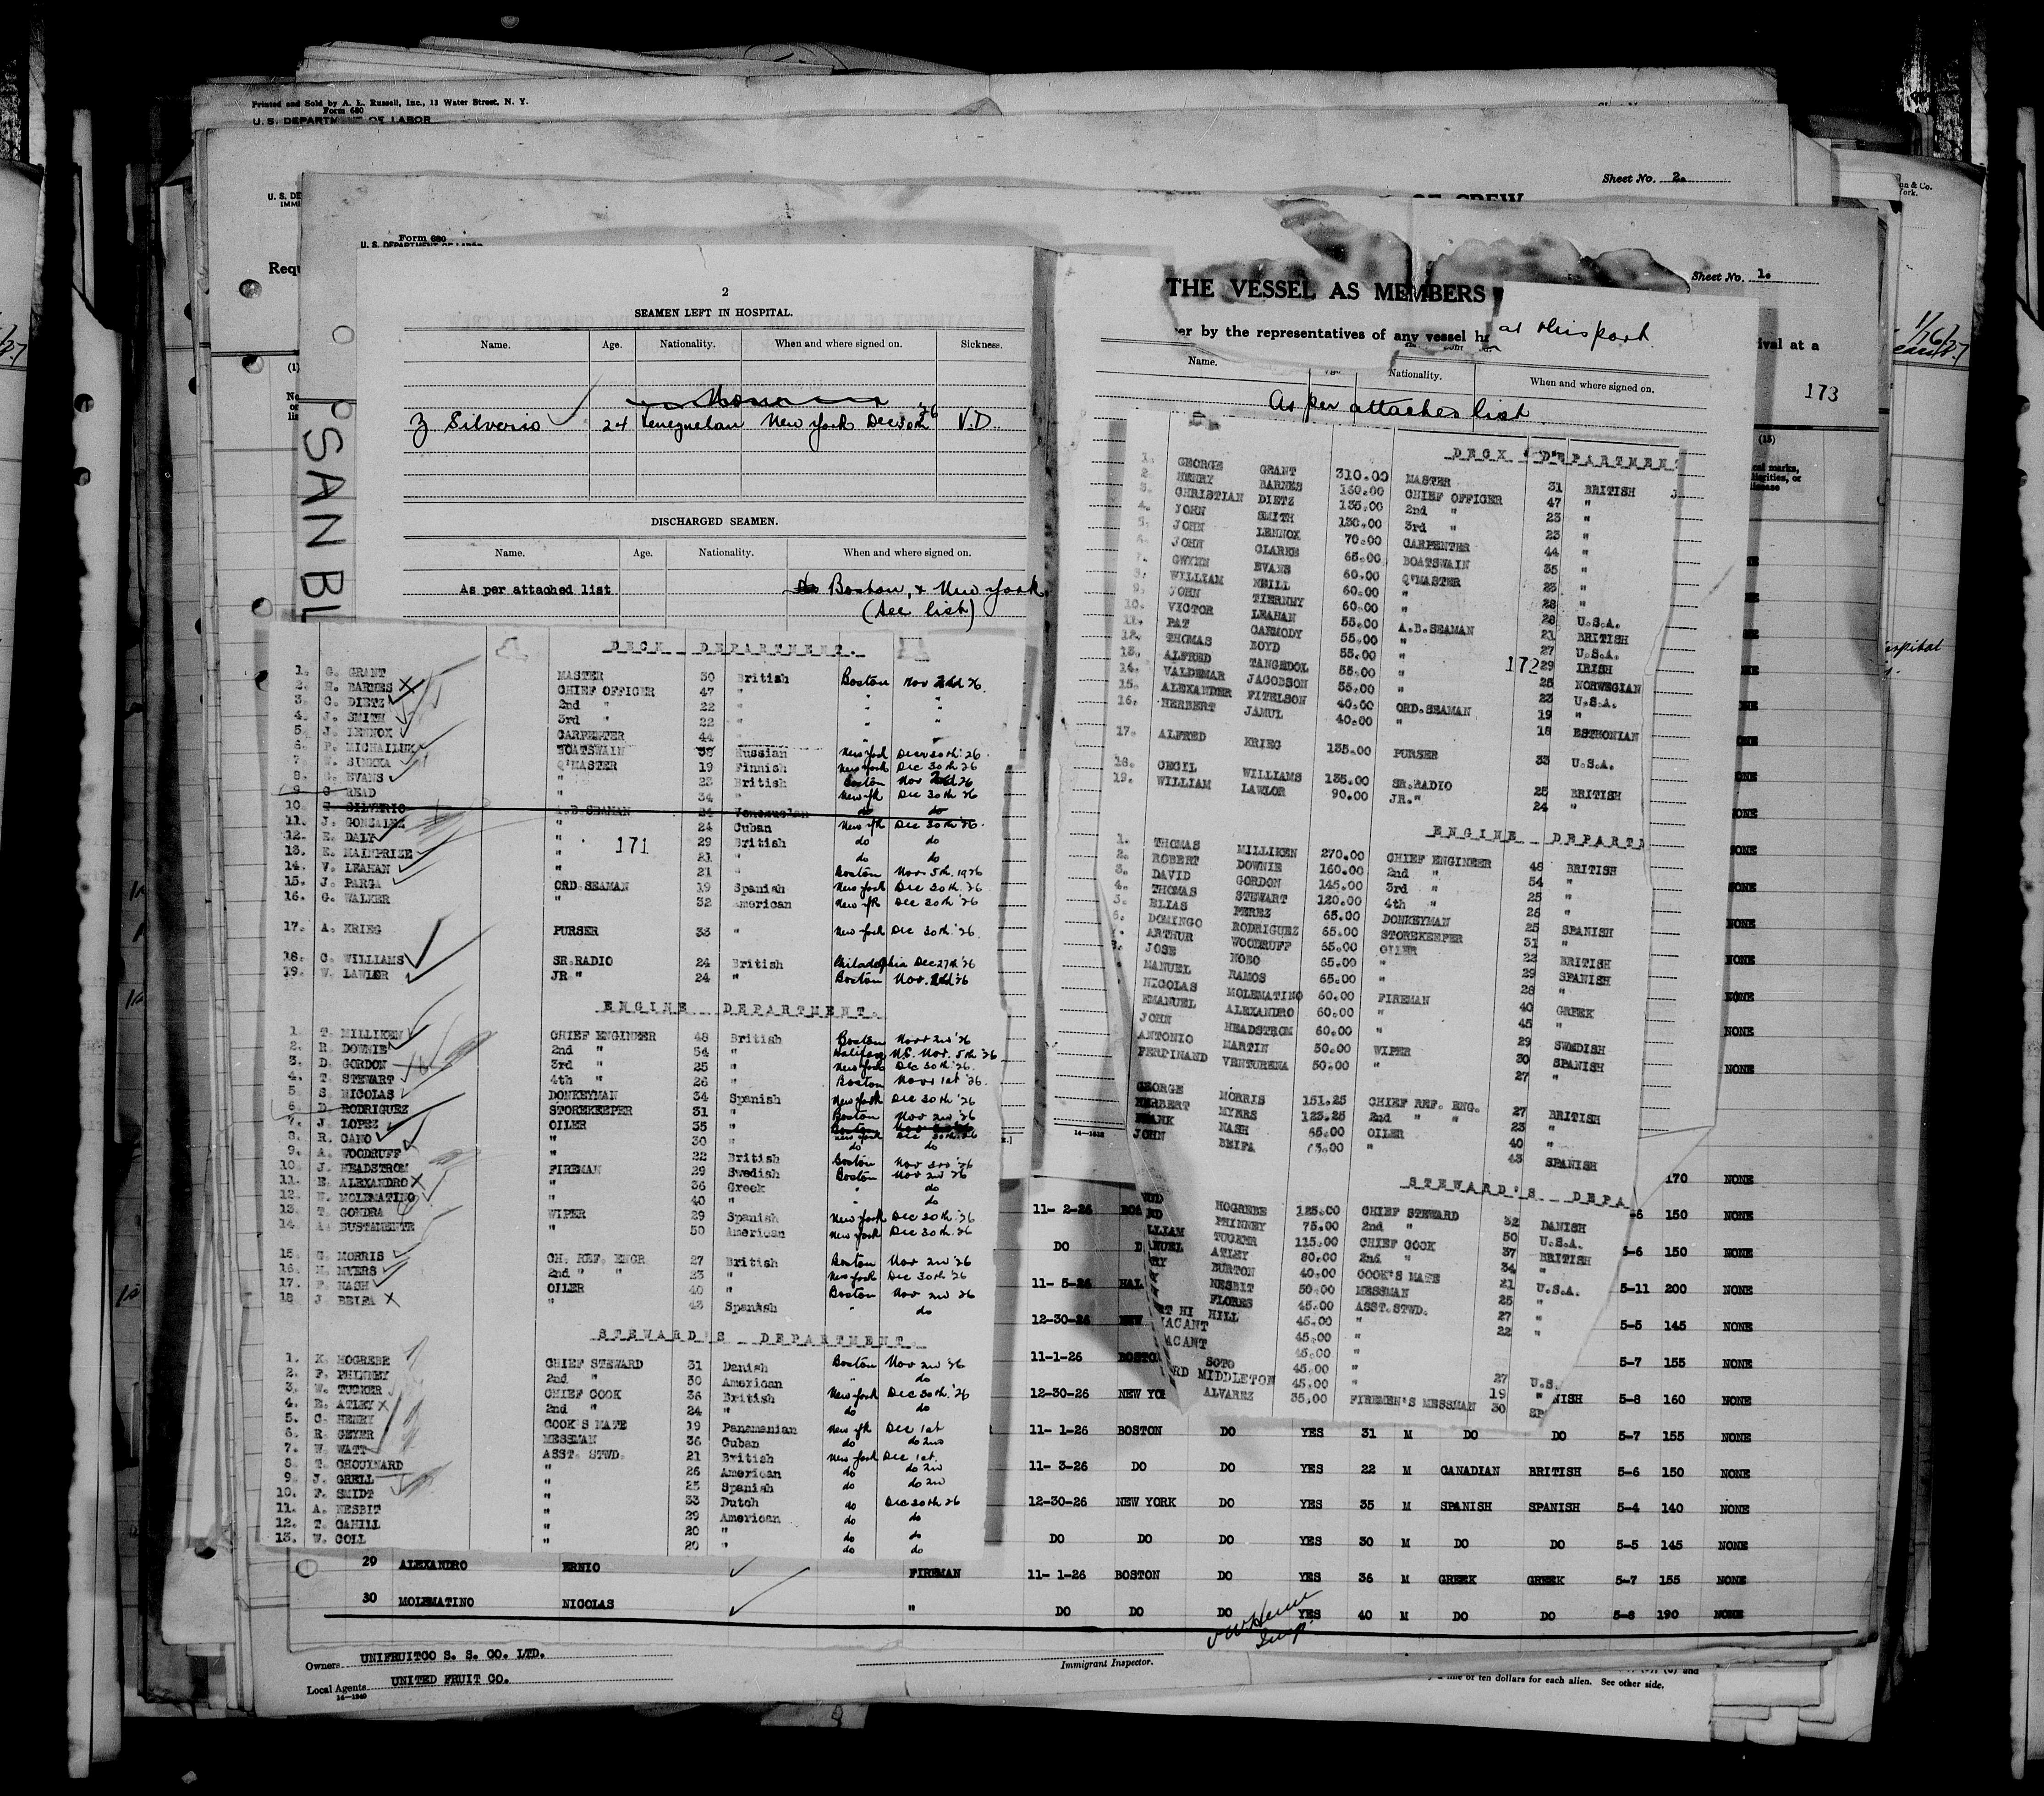 Printed and Sold by A. L. Russell, Inc., 13 Water Street, N. Y.
Form 680
U. S. DEPARTMENT OF LABOR
Sheet No. 2.
Form 680
Sheet No. 1.
SAN BL
2
SEAMEN LEFT IN HOSPITAL.
Name. Age. Nationality. When and where signed on. Sickness.
Z Silverio 24 Venezuelan New York Dec 30th 26 V.D.
DISCHARGED SEAMEN.
Name. Age. Nationality. When and where signed on.
As per attached list Boston, & New York
(See list)
DECK DEPARTMENT.
1. G. GRANT MASTER 30 British Boston Nov 2nd 26.
2. H. BARNES CHIEF OFFICER 47 " " "
3. C. DIETZ 2nd " 22 " " "
4. J. SMITH 3rd " 22 " " "
5. J. LENNOX CARPENTER 44 " " "
6. P. MICHAILUK BOATSWAIN 38 Russian New York Dec 30th '26.
7. E. SUKKA Q'MASTER 19 Finnish New York Dec 30th '26
8. G. EVANS " 23 British Boston Nov 2nd 26
9 C READ " 34 " New Yk Dec 30th '26
10. Z. SILVERIO A.B.SEAMAN 24 Venezuelan do do
11. J. GONZALEZ " 24 Cuban New Yk Dec 30th '26.
12. E. DALY " 29 British do do
171
13. E. MAINPRIZE " 21 " do do
14. V. LEAHAN " 21 " Boston Nov. 5th, 1926
15. J. PARGA ORD SEAMAN 19 Spanish New York Dec 30th '26
16. G. WALKER " 32 American New Yk Dec 30th '26
17. A. KRIEG PURSER 33 " New York Dec 30th '26.
18. C. WILLIAMS SR.RADIO 24 British Philadelphia Dec 27th '26
19. W. LAWLOR JR " 24 " Boston Nov. 2nd 26
ENGINE DEPARTMENT.
1. T. MILLIKEN CHIEF ENGINEER 48 British Boston Nov 2nd '26
2. R. DOWNIE 2nd " 54 " Halifax N.S. Nov. 5th '26
3. D. GORDON 3rd " 25 " New York Dec 30th '26.
4. T. STEWART 4th " 26 " Boston Nov 1st '26.
5 S. NICOLAS DONKEYMAN 34 Spanish New York Dec 30th '26
6 D. RODRIGUEZ STOREKEEPER 31 " Boston Nov 2nd '26
7. J. LOPEZ OILER 35 " New York Dec 30th 26
8. R. CANO " 30 " do do
9. A. WOODRUFF " 22 British Boston Nov 3rd '26
10. J. HEADSTROM FIREMAN 29 Swedish Boston Nov 2nd '26
11. E. ALEXANDRO " 36 Greek " do
12. N. MOLEMATINO " 40 " " do
13. T. GONDRA WIPER 29 Spanish New York Dec 30th '26
14. A. BUSTAMENTE " 50 American New York Dec 30th '26
15. G. MORRIS CH. REF. ENGR 27 British Boston Nov 2nd '26
16. H. MYERS 2nd " " 23 " New York Dec 30th '26
17. F. NASH OILER 40 " Boston Nov 2nd 26
18 J. BEIFA " 43 Spanish " do
STEWARD'S DEPARTMENT.
1. K. HOGREBE CHIEF STEWARD 31 Danish Boston Nov 2nd '26
2. F. PHINNEY 2nd " 50 American " do
3. W. TUCKER CHIEF COOK 36 British New York Dec 30th '26
4. E. ATLEY 2nd " 24 " do do
5. C. HENRY COOK'S MATE 19 Panamanian New Yk Dec 1st
6. R. GEYER MESSMAN 36 Cuban do do 2nd
7. W. WATT ASST. STWD. 21 British New York Dec 1st.
8 T. CHOUINARD " 26 American do do 2nd
9. J. GRELL " 25 Spanish do do 2nd
10. F. SMIDT " 33 Dutch do Dec 30th 26
11. A. NESBIT " 29 American do do
12. T. CAHILL " 20 " do do
13. W. COLL " 20 " do do
THE VESSEL AS MEMBERS
er by the representatives of any vessel
at this port.
ival at a
Name. Nationality. When and where signed on.
173
As per attached list
DECK DEPARTMENT
1. GEORGE GRANT 310.00 MASTER 31 BRITISH
2. HENRY BARNES 160.00 CHIEF OFFICER 47 "
3. CHRISTIAN DIETZ 135.00 2nd " 23 "
4. JOHN SMITH 130.00 3rd " 23 "
5. JOHN LENNOX 70.00 CARPENTER 44 "
6. JOHN CLARKE 65.00 BOATSWAIN 35 "
7. GWYNN EVANS 60.00 Q'MASTER 23 "
8. WILLIAM NEILL 60.00 " 28 "
9. JOHN TIERNEY 60.00 " 28 U.S.A.
10. VICTOR LEAHAN 55.00 A.B.SEAMAN 21 BRITISH
11. PAT CARMODY 55.00 " 27 U.S.A.
12. THOMAS BOYD 55.00 " 29 IRISH
172
13. ALFRED TANGEDOL 55.00 " 25 NORWEGIAN
14. VALDEMAR JACOBSON 55.00 " 23 U.S.A.
15. ALEXANDER FITELSON 40.00 ORD.SEAMAN 19 "
16. HERBERT JAMUL 40.00 " 18 ESTHONIAN
17. ALFRED KRIEG 135.00 PURSER 33 U.S.A.
18. CECIL WILLIAMS 135.00 SR.RADIO 25 BRITISH
19. WILLIAM LAWLOR 90.00 JR." 24 "
ENGINE DEPARTM
1. THOMAS MILLIKEN 270.00 CHIEF ENGINEER 48 BRITISH
2. ROBERT DOWNIE 160.00 2nd " 54 "
3. DAVID GORDON 145.00 3rd " 25 "
4. THOMAS STEWART 120.00 4th " 26 "
5. ELIAS PEREZ 65.00 DONKEYMAN 25 SPANISH
6. DOMINGO RODRIGUEZ 65.00 STOREKEEPER 31 "
7. ARTHUR WOODRUFF 65.00 OILER 22 BRITISH
8. JOSE NOBO 65.00 " 29 SPANISH
MANUEL RAMOS 65.00 " 28 "
NICOLAS MOLEMATINO 60.00 FIREMAN 40 GREEK
EMANUEL ALEXANDRO 60.00 " 45 "
JOHN HEADSTROM 60.00 " 29 SWEDISH
ANTONIO MARTIN 50.00 WIPER 30 SPANISH
FERDINAND VENTURENA 50.00 " 27 "
GEORGE MORRIS 151.25 CHIEF REF. ENG. 27 BRITISH
HERBERT MYERS 123.25 2nd " " 23 "
FRANK NASH 65.00 OILER 40 "
JOHN BEIFA 65.00 " 43 SPANISH
STEWARD'S DEPA
HOGREBE 125.00 CHIEF STEWARD 32 DANISH
PHINNEY 75.00 2nd " 50 U.S.A.
LLIAM TUCKER 115.00 CHIEF COOK 37 BRITISH
ATLEY 80.00 2nd " 34 "
BURTON 40.00 COOK'S MATE 21 U.S.A.
NESBIT 50.00 MESSMAN 25 "
FLORES 45.00 ASST.STWD. 27 "
HILL 45.00 " 22 "
VACANT 45.00 "
ACANT 45.00 "
SOTO 45.00 " 27 U.S.
RD MIDDLETON 45.00 " 19 "
ALVAREZ 35.00 FIREMEN'S MESSMAN 30 SP
170 NONE
11- 2-26 150 NONE
DO 5-6 150 NONE
11- 5-26 HAL 5-11 200 NONE
12-30-26 NEW 5-5 145 NONE
11-1-26 BOSTON 5-7 155 NONE
12-30-26 NEW YO NISH 5-8 160 NONE
11- 1-26 BOSTON DO YES 31 M DO DO 5-7 155 NONE
11- 3-26 DO DO YES 22 M CANADIAN BRITISH 5-6 150 NONE
12-30-26 NEW YORK DO YES 35 M SPANISH SPANISH 5-4 140 NONE
DO DO DO YES 30 M DO DO 5-5 145 NONE
29 ALEXANDRO ERNIO FIREMAN 11- 1-26 BOSTON DO YES 36 M GREEK GREEK 5-7 155 NONE
30 MOLEMATINO NICOLAS " DO DO DO YES 40 M DO DO 5-8 190 NONE
Owners UNIFRUITCO S. S. CO. LTD.
Local Agents UNITED FRUIT CO.
14-1240
Immigrant Inspector.
a fine of ten dollars for each alien. See other side.